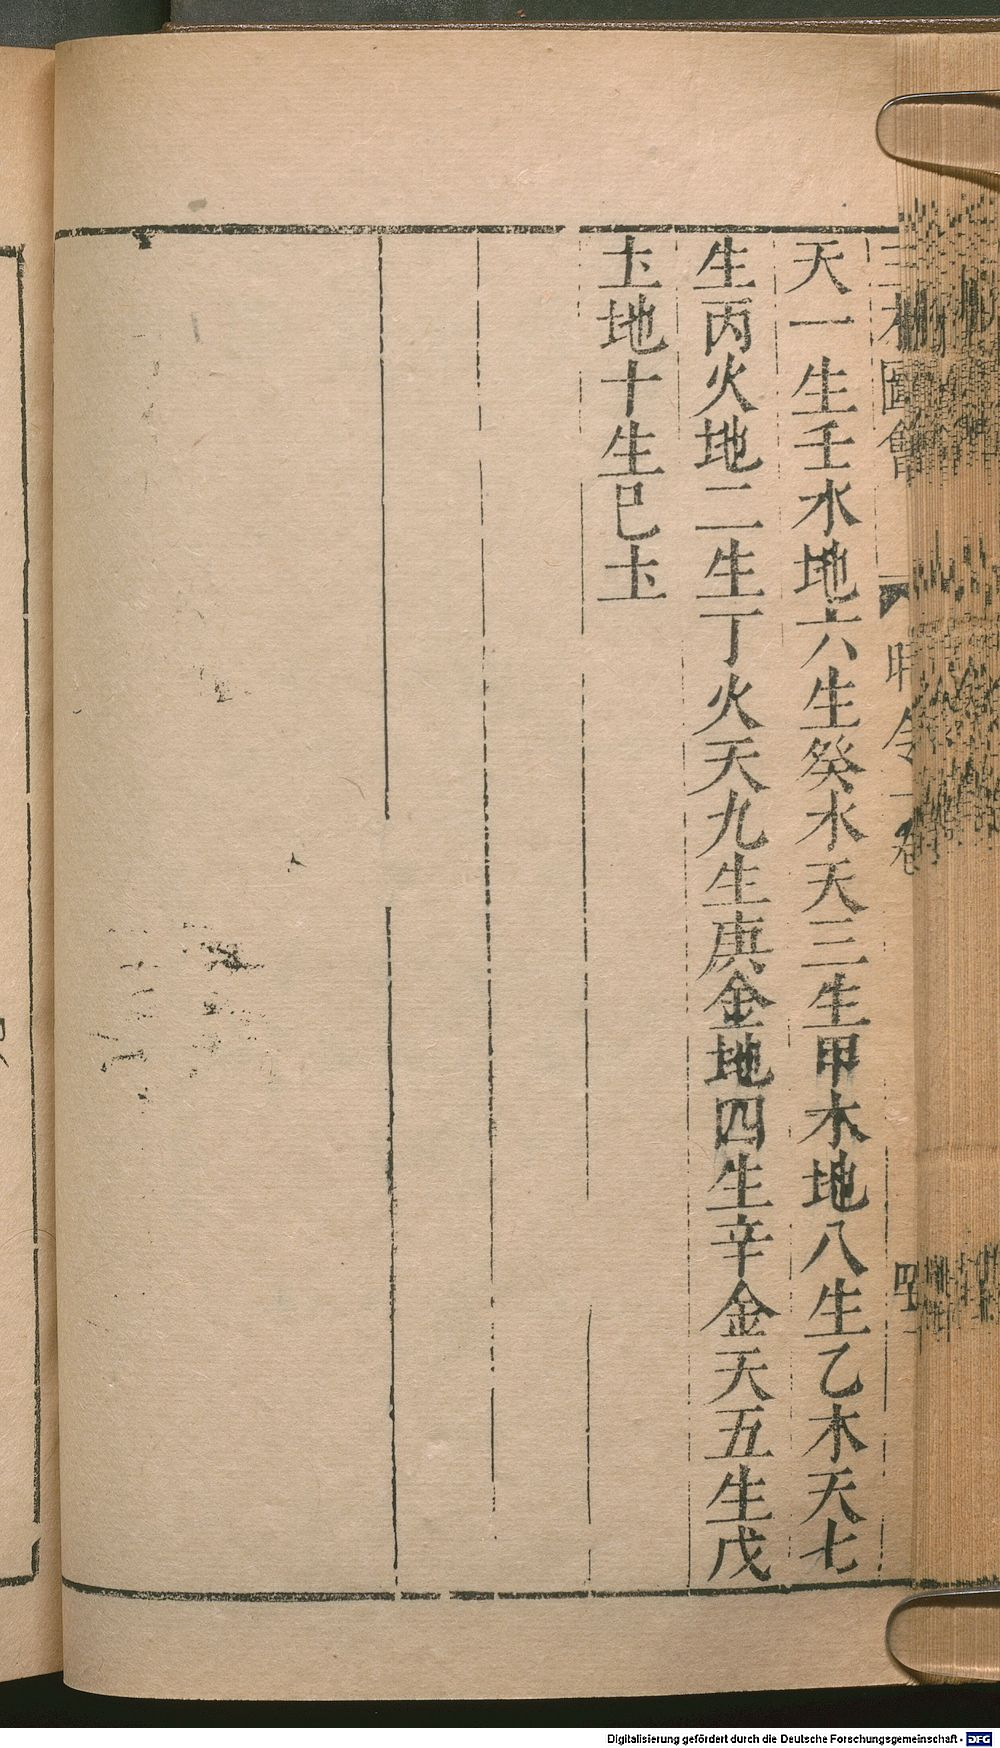 三才圖會 時令一卷 四
天一生壬水地六生癸水天三生甲木地八生乙木天七
生丙火地二生丁火天九生庚金地四生辛金天五生戊
圡地十生巳圡
Digitalisierung gefördert durch die Deutsche Forschungsgemeinschaft - DFG